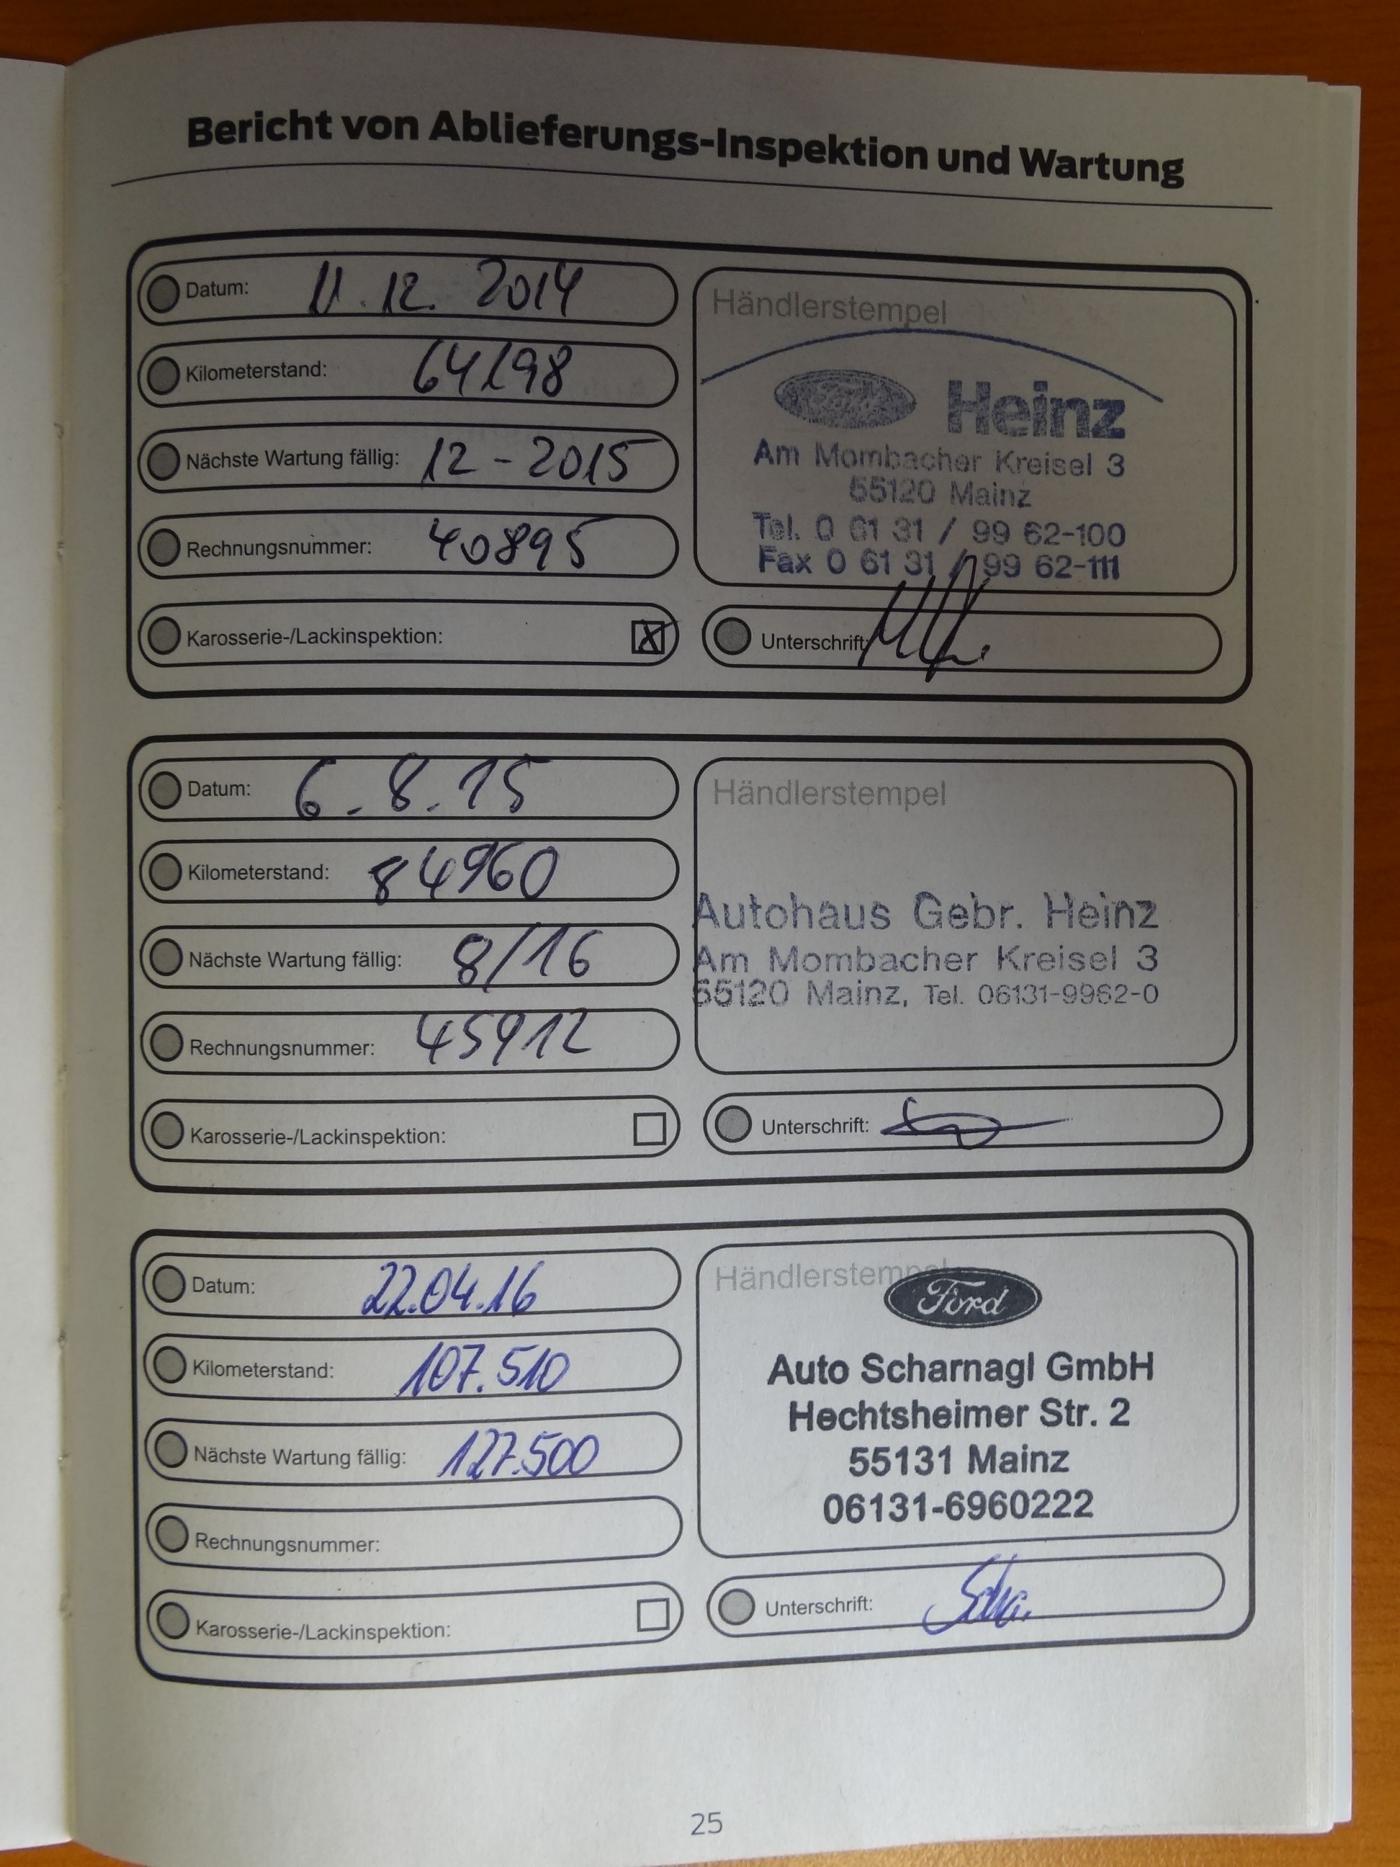 Bericht von Ablieferungs-Inspektion und Wartung
Datum: 11.12.2014
Kilometerstand: 64198
Nächste Wartung fällig: 12-2015
Rechnungsnummer: 40895
Karosserie-/Lackinspektion: X
Händlerstempel
Ford Heinz
Am Mombacher Kreisel 3
55120 Mainz
Tel. 0 61 31 / 99 62-100
Fax 0 61 31 / 99 62-111
Unterschrift:
Datum: 6.8.15
Kilometerstand: 84960
Nächste Wartung fällig: 8/16
Rechnungsnummer: 45912
Karosserie-/Lackinspektion:
Händlerstempel
Autohaus Gebr. Heinz
Am Mombacher Kreisel 3
55120 Mainz, Tel. 06131-9962-0
Unterschrift:
Datum: 22.04.16
Kilometerstand: 107.510
Nächste Wartung fällig: 127.500
Rechnungsnummer:
Karosserie-/Lackinspektion:
Händlerstempel
Ford
Auto Scharnagl GmbH
Hechtsheimer Str. 2
55131 Mainz
06131-6960222
Unterschrift:
25